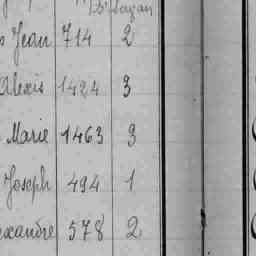 Jean 714 2
Alexis 1424 3
Marie 1463 3
Joseph 494 1
exandre 578 2